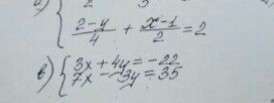 (2-y)/4 + (x-1)/2 = 2
в) { 3x + 4y = -22
7x - 3y = 35